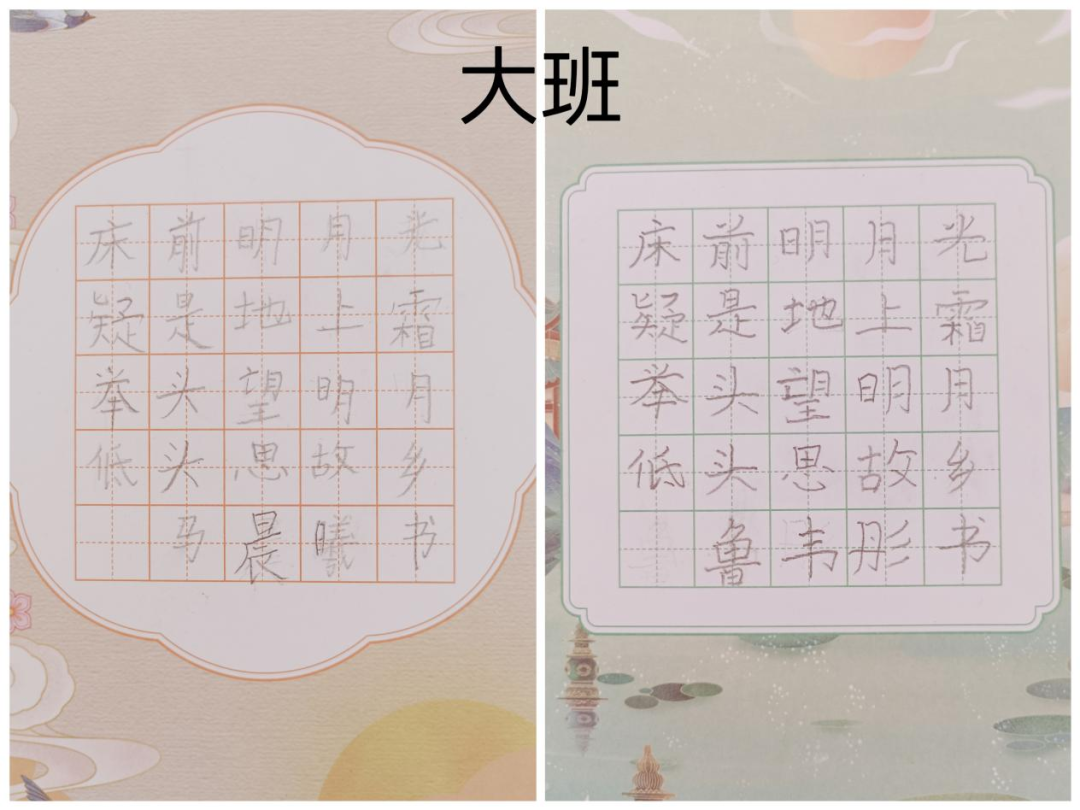 大班
床前明月光
疑是地上霜
举头望明月
低头思故乡
马晨曦书
床前明月光
疑是地上霜
举头望明月
低头思故乡
鲁韦彤书